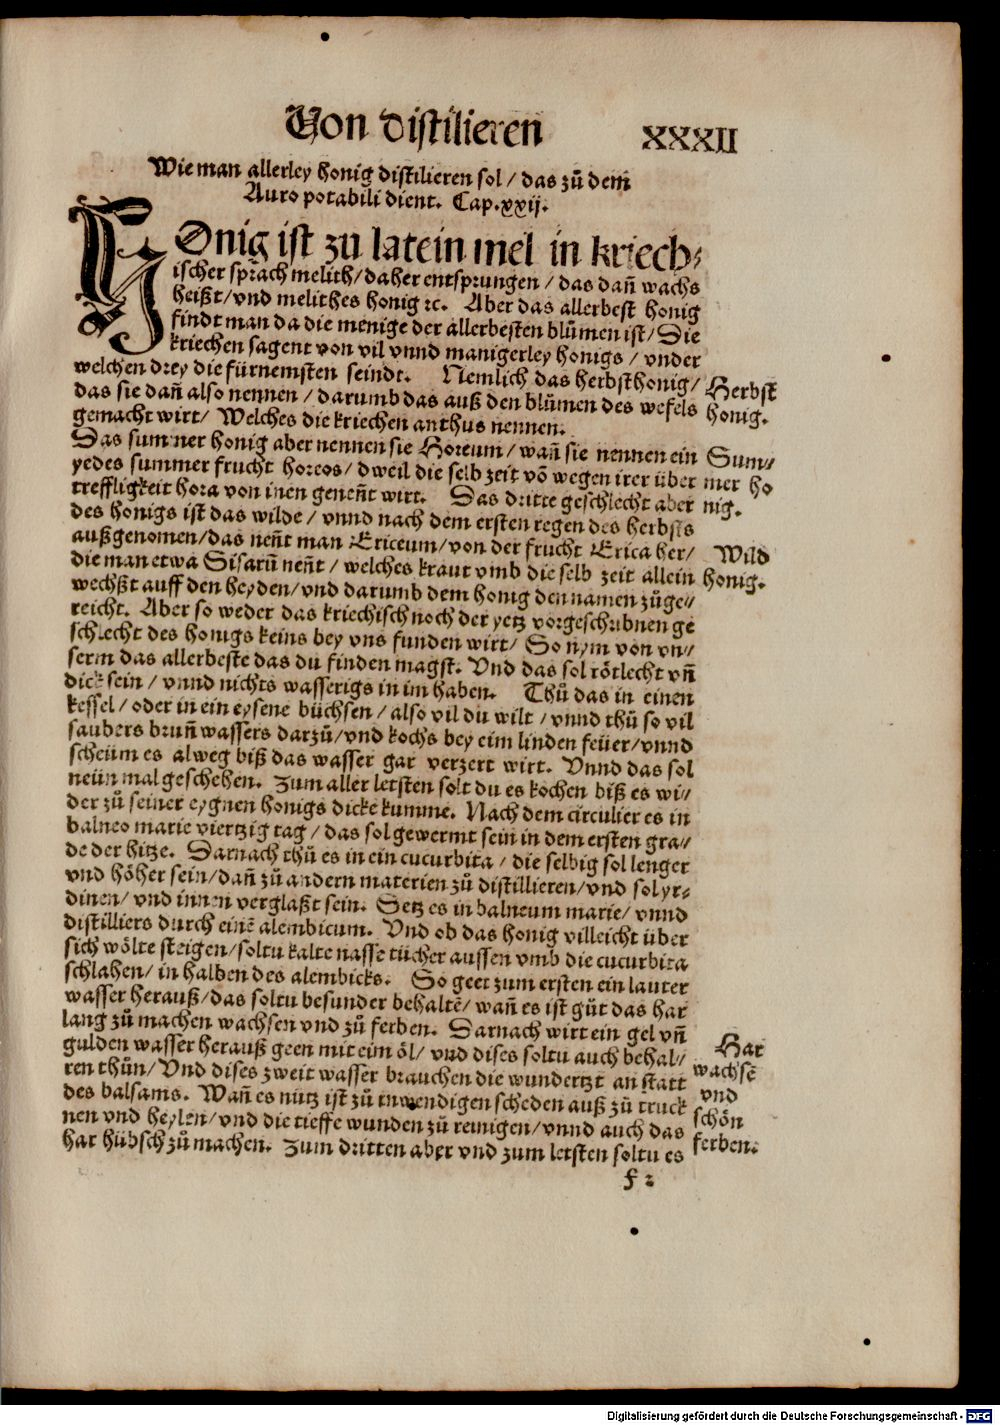 Von distilieren
XXXII
Wie man allerley honig distilieren sol / das zů dem
Auro potabili dient. Cap.xxij.
HOnig ist zu latein mel in kriech⸗
ischer sprach melith/ daher entsprungen / das dañ wachs
heißt/ vnd melithes honig ꝛc. Aber das allerbest honig
findt man da die menige der allerbesten blůmen ist/ Die
kriechen sagent von vil vnnd manigerley honigs / vnder
welchen drey die fürnemsten seindt. Nemlich das herbsthonig/
das sie dañ also nennen / darumb das auß den blůmen des wefels
gemacht wirt/ Welches die kriechen anthus nennen.
Herbst
honig.
Das summer honig aber nennen sie Horeum / wañ sie nennen ein
yedes summer frucht horeos/ dweil die selb zeit võ wegen irer über
treffligkeit hora von inen geneñt wirt. Das dritte geschlecht aber
des honigs ist das wilde / vnnd nach dem ersten regen des herbsts
Sum⸗
mer ho
nig.
außgenomen/ das neñt man Ericeum/ von der frucht Erica her/
die man etwa Sisarũ neñt / welches kraut vmb die selb zeit allein
wechßt auff den heyden/ vnd darumb dem honig den namen zůge⸗
Wild
honig.
reicht. Aber so weder das kriechisch noch der yetz vorgeschribnen ge
schlecht des honigs keins bey vns funden wirt/ So nym von vn⸗
serm das allerbeste das du finden magst. Vnd das sol rötlecht vñ
dick sein / vnnd nichts wasserigs in im haben. Thů das in einen
kessel / oder in ein eysene büchsen / also vil du wilt / vnnd thů so vil
saubers bruñ wassers darzů/ vnd kochs bey eim linden feüer/ vnnd
scheüm es alweg biß das wasser gar verzert wirt. Vnnd das sol
neün mal geschehen. Zum aller letsten solt du es kochen biß es wi⸗
der zů seiner eygnen honigs dicke kumme. Nach dem circulier es in
balneo marie viertzig tag / das sol gewermt sein in dem ersten gra⸗
de der hitze. Darnach thů es in ein cucurbita / die selbig sol lenger
vnd höher sein/ dañ zů andern materien zů distillieren/ vnd sol yr⸗
dinen/ vnd innen verglaßt sein. Setz es in balneum marie/ vnnd
distilliers durch einẽ alembicum. Vnd ob das honig villeicht über
sich wölte steigen/ soltu kalte nasse tücher aussen vmb die cucurbita
schlahen/ in halben des alembicks. So geet zum ersten ein lauter
wasser herauß/ das soltu besunder behaltẽ/ wañ es ist gůt das har
lang zů machen wachsen vnd zů ferben. Darnach wirt ein gel vñ
gulden wasser herauß geen mit eim öl/ vnd dises soltu auch behal⸗
ten thůn/ Vnd dises zweit wasser brauchen die wundertzt an statt
des balsams. Wañ es nütz ist zů inwendigen scheden auß zů truck
nen vnd heylen/ vnd die tieffe wunden zů reinigen/ vnnd auch das
har hübsch zů machen. Zum dritten aber vnd zum letsten soltu es
Har
wachsẽ
vnd
schön
ferben.
f 2
Digitalisierung gefördert durch die Deutsche Forschungsgemeinschaft - DFG